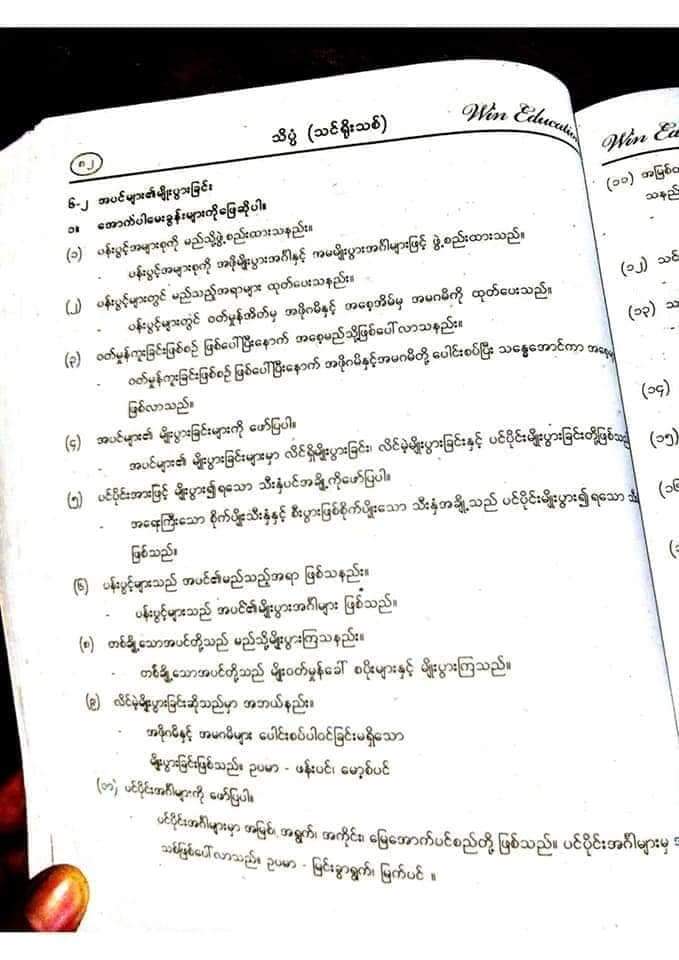 သိပ္ပံ (သင်ရိုးသစ်) Win Education
၈၂
၆-၂ အပင်များ၏မျိုးပွားခြင်း
၁။ အောက်ပါမေးခွန်းများကိုဖြေဆိုပါ။
(၁) ပန်းပွင့်အများစုကို မည်သို့ဖွဲ့စည်းထားသနည်း။
- ပန်းပွင့်အများစုကို အဖိုမျိုးပွားအင်္ဂါနှင့် ကမမျိုးပွားအင်္ဂါများဖြင့် ဖွဲ့စည်းထားသည်။
(၂) ပန်းပွင့်များတွင် မည်သည့်အရာများ ထုတ်ပေးသနည်း။
- ပန်းပွင့်များတွင် ဝတ်မှုန်အိတ်မှ အဖိုဂမိနှင့် အစေ့အိမ်မှ အမဂမိကို ထုတ်ပေးသည်။
(၃) ဝတ်မှုန်ကူးခြင်းဖြစ်စဉ် ဖြစ်ပေါ်ပြီးနောက် အစေ့မည်သို့ဖြစ်ပေါ်လာသနည်း။
- ဝတ်မှုန်ကူးခြင်းဖြစ်စဉ် ဖြစ်ပေါ်ပြီးနောက် အဖိုဂမိနှင့်အမဂမိတို့ ပေါင်းစပ်ပြီး သန္ဓေအောင်ကာ
ဖြစ်လာသည်။
(၄) အပင်များ၏ မျိုးပွားခြင်းများကို ဖော်ပြပါ။
- အပင်များ၏ မျိုးပွားခြင်းများမှာ လိင်ရှိမျိုးပွားခြင်း၊ လိင်မဲ့မျိုးပွားခြင်းနှင့် ပင်ပိုင်းမျိုးပွားခြင်းတို့ဖြစ်သည်
(၅) ပင်ပိုင်းအားဖြင့် မျိုးပွား၍ရသော သီးနှံပင်အချို့ကိုဖော်ပြပါ။
- အရေးကြီးသော စိုက်ပျိုးသီးနှံနှင့် စီးပွားဖြစ်စိုက်ပျိုးသော သီးနှံအချို့သည် ပင်ပိုင်းမျိုးပွား၍ရသော
ဖြစ်သည်။
(၆) ပန်းပွင့်များသည် အပင်၏မည်သည့်အရာ ဖြစ်သနည်း။
- ပန်းပွင့်များသည် အပင်၏မျိုးပွားအင်္ဂါများ ဖြစ်သည်။
(၈) တစ်ချို့သောအပင်တို့သည် မည်သို့မျိုးပွားကြသနည်း။
- တစ်ချို့သောအပင်တို့သည် မျိုးဝတ်မှုန်ခေါ် စပိုးများနှင့် မျိုးပွားကြသည်။
(၉) လိင်မဲ့မျိုးပွားခြင်းဆိုသည်မှာ အဘယ်နည်း။
- အဖိုဂမိနှင့် အမဂမိများ ပေါင်းစပ်ပါဝင်ခြင်းမရှိသော
မျိုးပွားခြင်းဖြစ်သည်။ ဥပမာ - ဖန်းပင်၊ မော့စ်ပင်
(၁၀) ပင်ပိုင်းအင်္ဂါများကို ဖော်ပြပါ။
- ပင်ပိုင်းအင်္ဂါများမှာ အမြစ်၊ အရွက်၊ အကိုင်း၊ မြေအောက်ပင်စည်တို့ ဖြစ်သည်။ ပင်ပိုင်းအင်္ဂါများမှ
သစ်ဖြစ်ပေါ်လာသည်။ ဥပမာ - မြင်းခွာရွက်၊ မြက်ပင် ။
Win Ed
(၁၁) အမြစ်
သနည်
-
(၁၂) သင်
(၁၃)
-
(၁၄)
(၁၅)